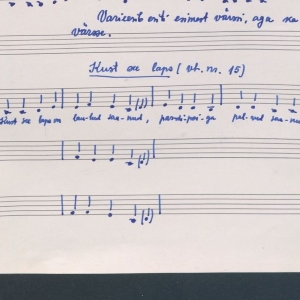 Varieerib eriti esimest värssi, aga ka
värssi.
Kust sie laps (vt. nr. 15)
Kust sie laps on lau-lud saa-nud, pardi-poi-ga pal-vud saa-nud